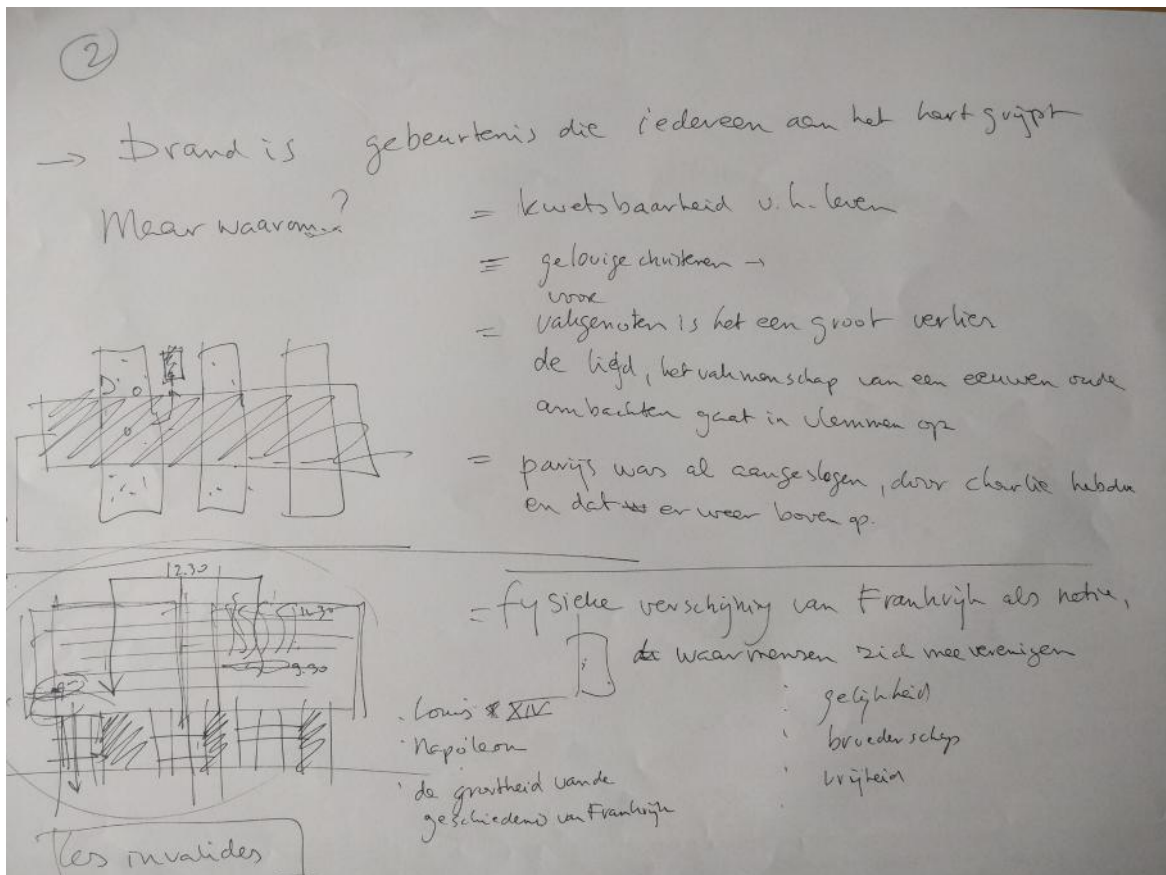 2
→ Brand is gebeurtenis die iedereen aan het hart grijpt
Maar waarom?
= kwetsbaarheid v.h. leven
= gelovige christenen →
voor
= vakgenoten is het een groot verlies
de tijd, het vakmanschap van een eeuwen oude
ambachten gaat in vlammen op
= parijs was al aangeslagen, door charlie hebdo
en dat er weer boven op.
12.30
12.30
9.30
= fysieke verschijning van Frankrijk als natie,
waar mensen zich mee verenigen
· Louis XIV
· Napoleon
· de grootheid van de
geschiedenis van Frankrijk
: gelijkheid
· broederschap
· vrijheid
Les invalides